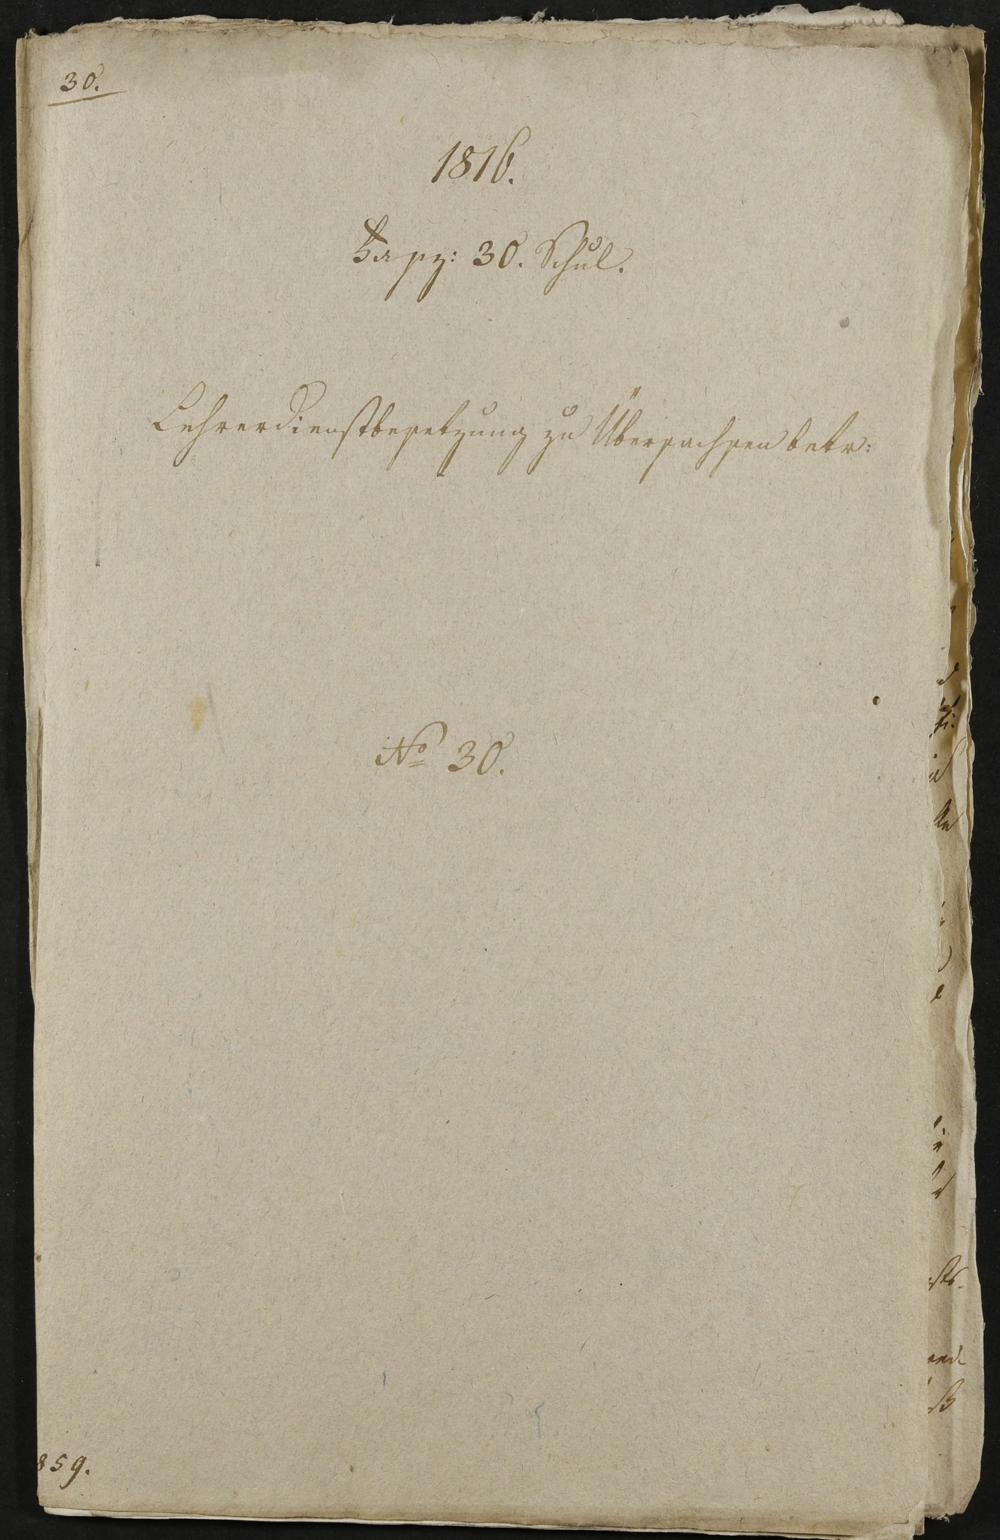 30.
1816.
Fasz: 30. Schul.
Lehrerdienstbesetzung zu Übersachsen betr:
No 30.
859.